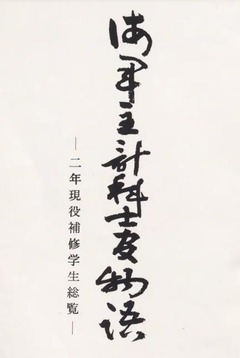 海軍主計科士官物語
―二年現役補修学生総覧―